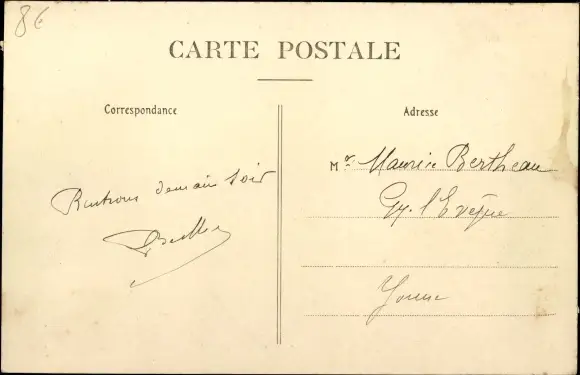 8€
CARTE POSTALE
Correspondance
Adresse
Rentrons demain soir
Mr. Maurice Bertheau
Gy. l'Evêque
Yonne